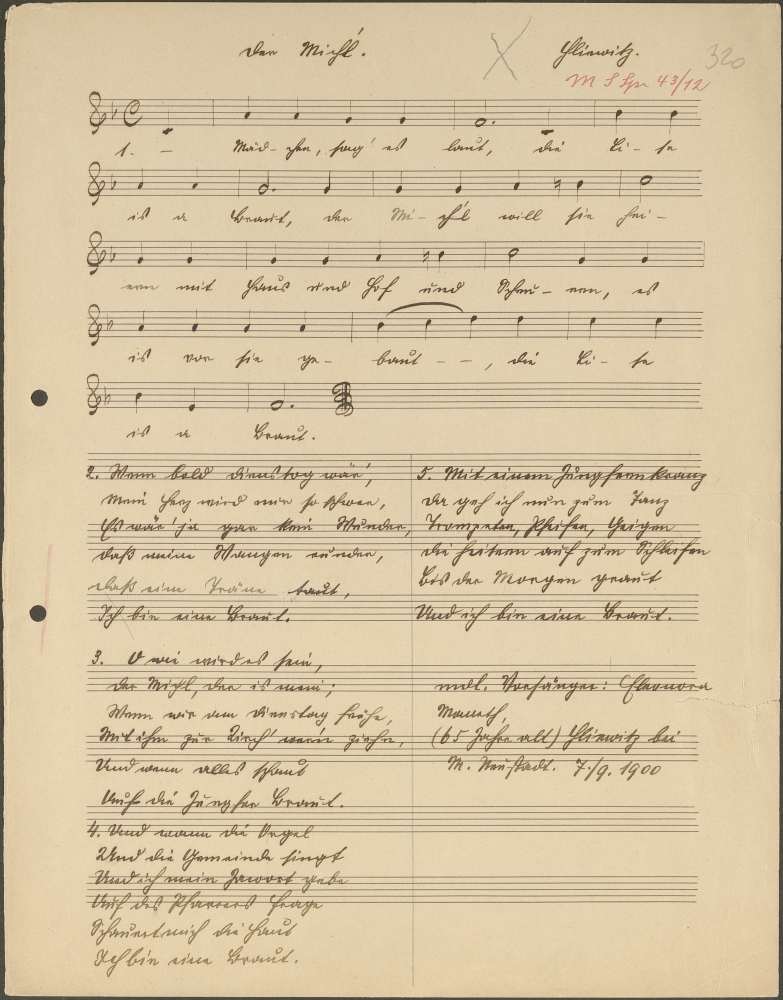 Der Michl. Hliewitz. 320
M S Spr 43/12
1. – Mäd-chen, sag' es laut, die Li-se
is a Braut, der Mi-ch'l will sie frei-
ern mit Haus und Hof und Scheu-ern, es
is vor sie ge-baut – – , die Li-se
is a Braut.
2. Wenn bald Dienstag wär',
Mein Herz wird mir so schwer,
Es wär' ja gar kein Wunder,
daß meine Wangen runder,
daß eine Träne taut,
Ich bin eine Braut.
3. O wie wird es sein,
Der Michl, der is mein;
Wenn wir am Dienstag frühe,
Mit ihm zur Kirch' werin ziehn,
Und wenn alles schaut
Auf die Jungfer Braut.
4. Und wann die Orgel
Und die Gemeinde singt
Und ich mein Jawort gebe
Auf des Pfarrers Frage
Schauert mich die Haut
Ich bin eine Braut.
5. Mit einem Jungfernkranz
Da geh ich nun zum Tanz
Trompeten, Pfeifen, Geigen
die heitern auf zum Schleifen
Bis der Morgen graut
Und ich bin eine Braut.
mdl. Vorsänger: Eleonora
(65 Jahre alt) Hliewitz bei
M. Neustadt. 7./9. 1900